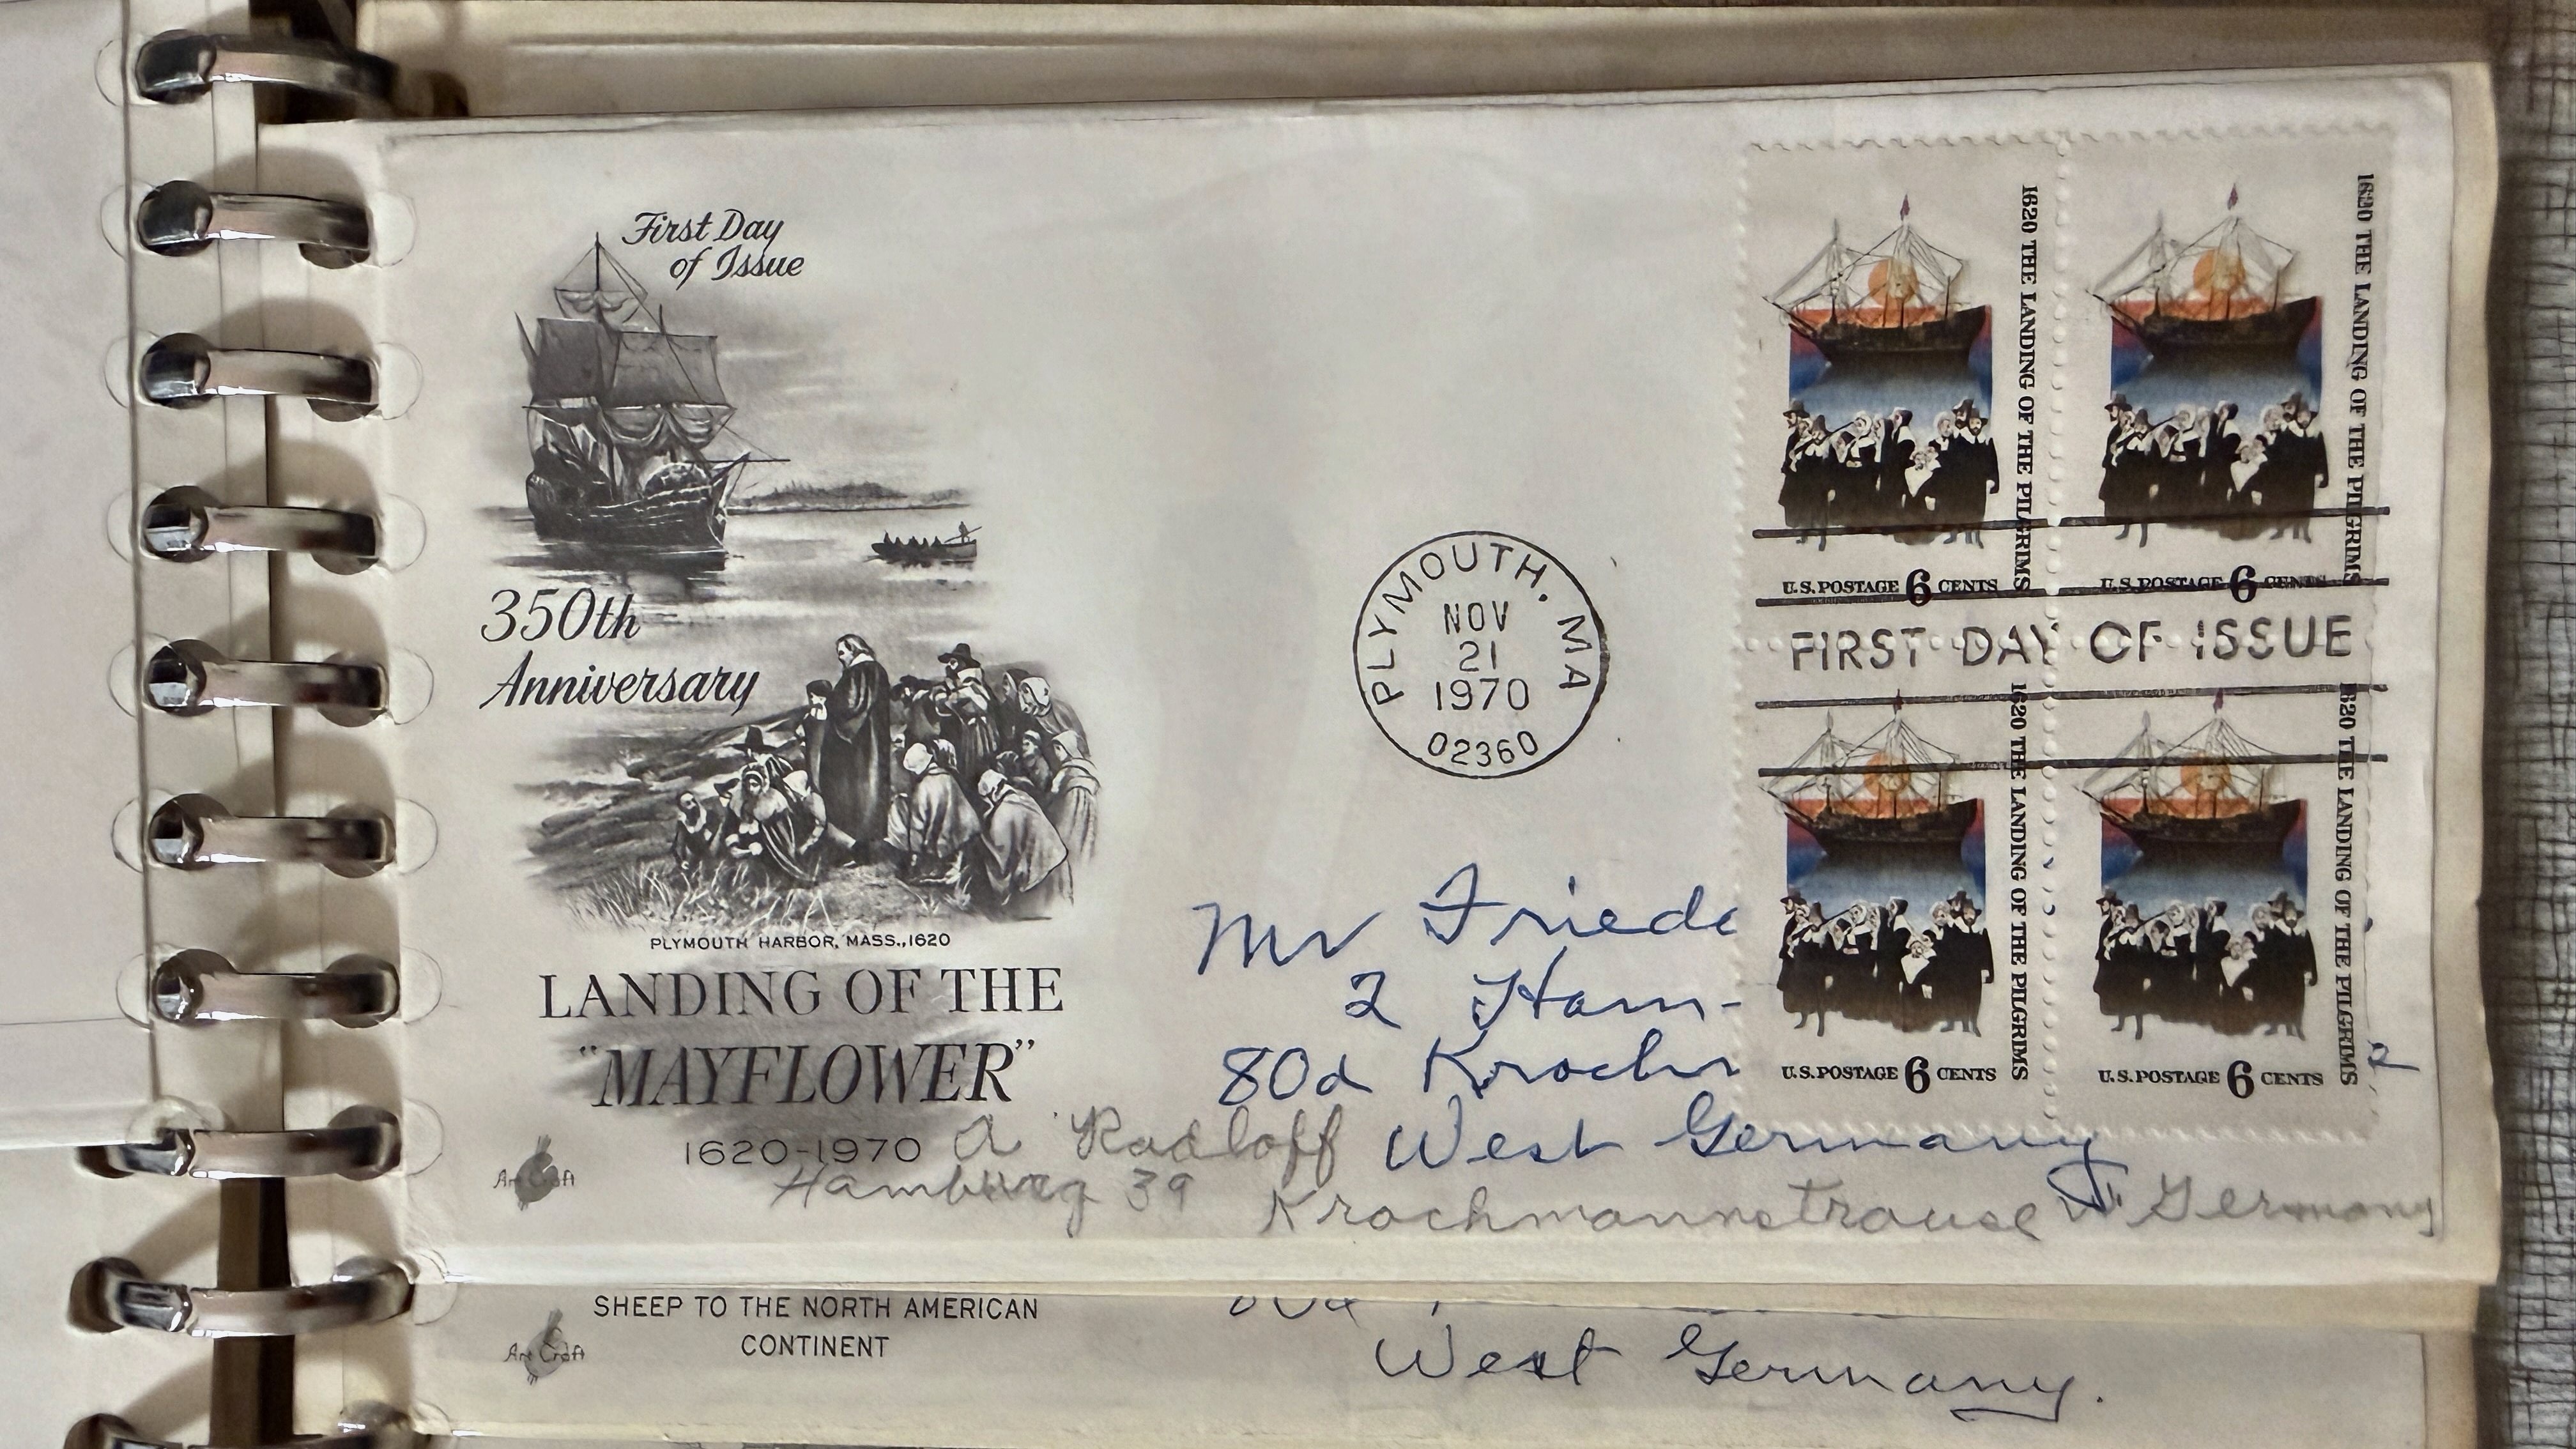 First Day
of Issue
350th
Anniversary
PLYMOUTH HARBOR, MASS., 1620
LANDING OF THE
"MAYFLOWER"
1620-1970
Art Craft
PLYMOUTH, MA
NOV
21
1970
02360
1620 THE LANDING OF THE PILGRIMS
U.S. POSTAGE 6 CENTS
1620 THE LANDING OF THE PILGRIMS
U.S. POSTAGE 6 CENTS
FIRST DAY OF ISSUE
1620 THE LANDING OF THE PILGRIMS
U.S. POSTAGE 6 CENTS
1620 THE LANDING OF THE PILGRIMS
U.S. POSTAGE 6 CENTS
Mr Friede
2 Ham-
80d Krochm
2
West Germany
A Radloff
Hamburg 39
Krochmannstrause W Germany
SHEEP TO THE NORTH AMERICAN
CONTINENT
Art Craft
West Germany.